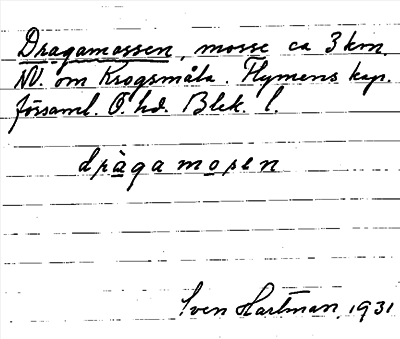 Dragamossen, mosse ca 3 km.
NV. om Krogsmåla. Flymens kap.
församl. Ö. hd. Blek. l.
dràgamosen
Sven Hartman, 1931